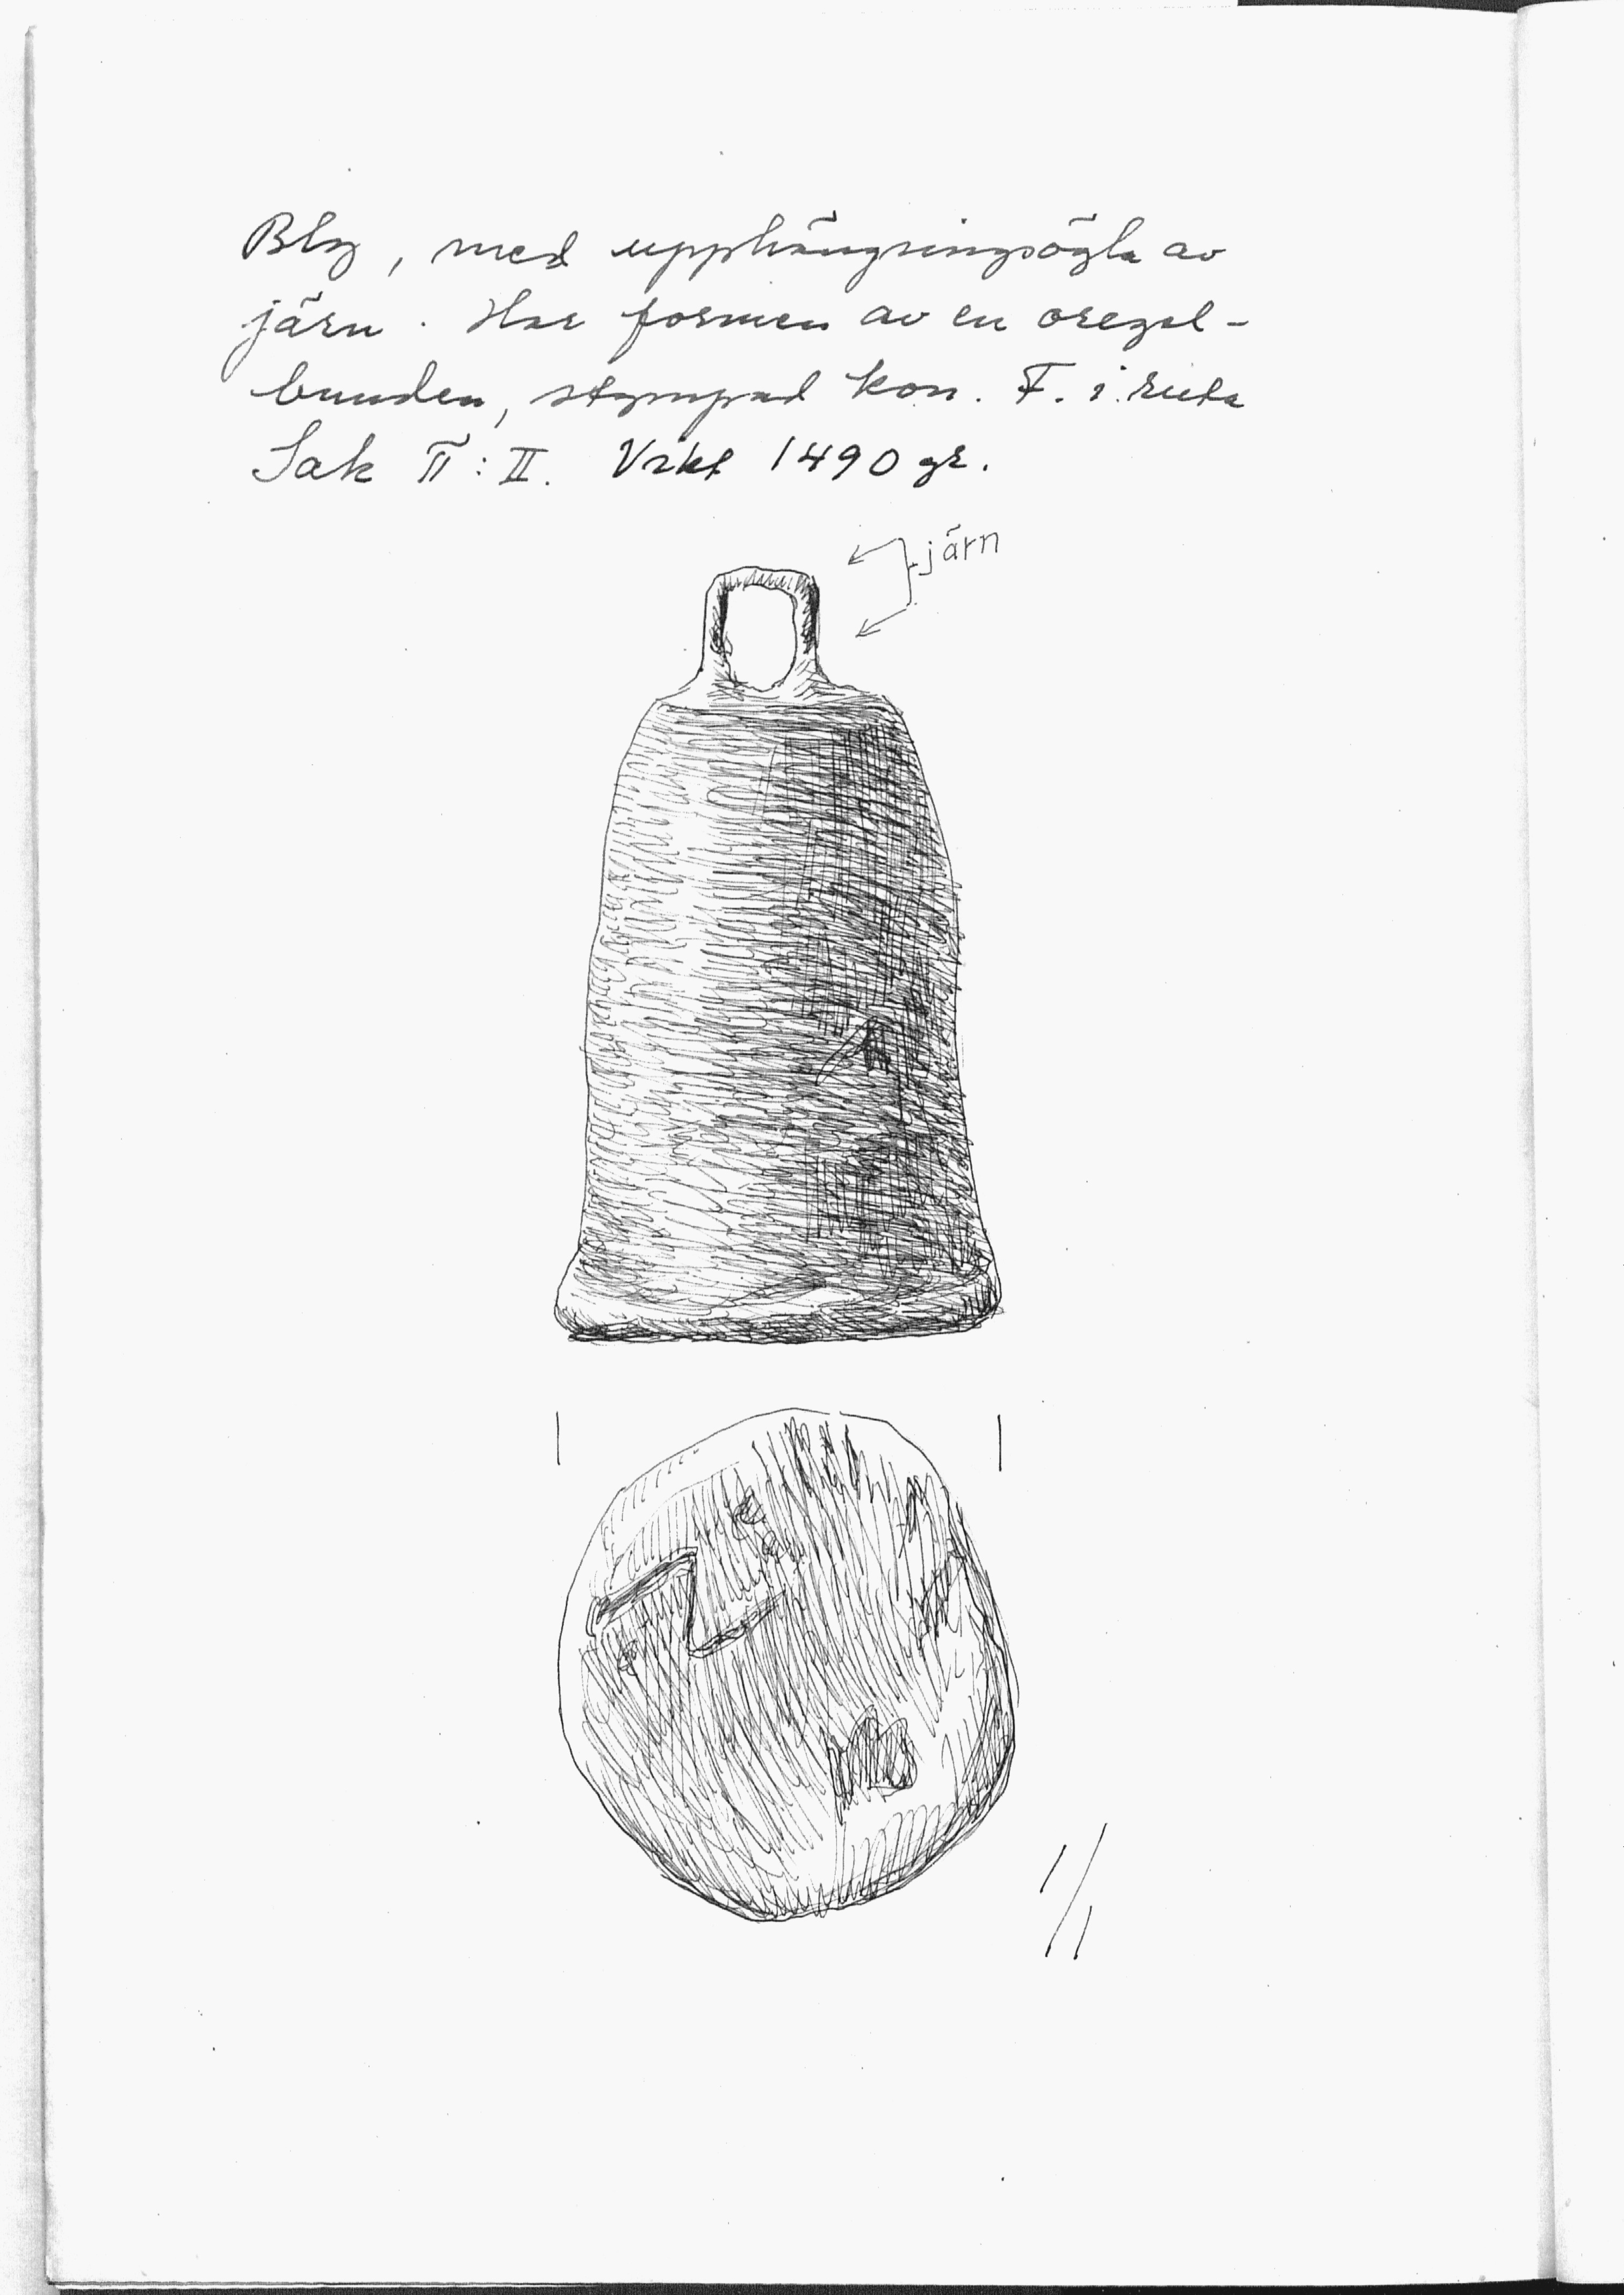 Bly, med upphängningsögla av
järn. Har formen av en oregel-
bunden, stympad kon. F. i ruta
Sak II:II. Vikt 1490 gr.
järn
1/1